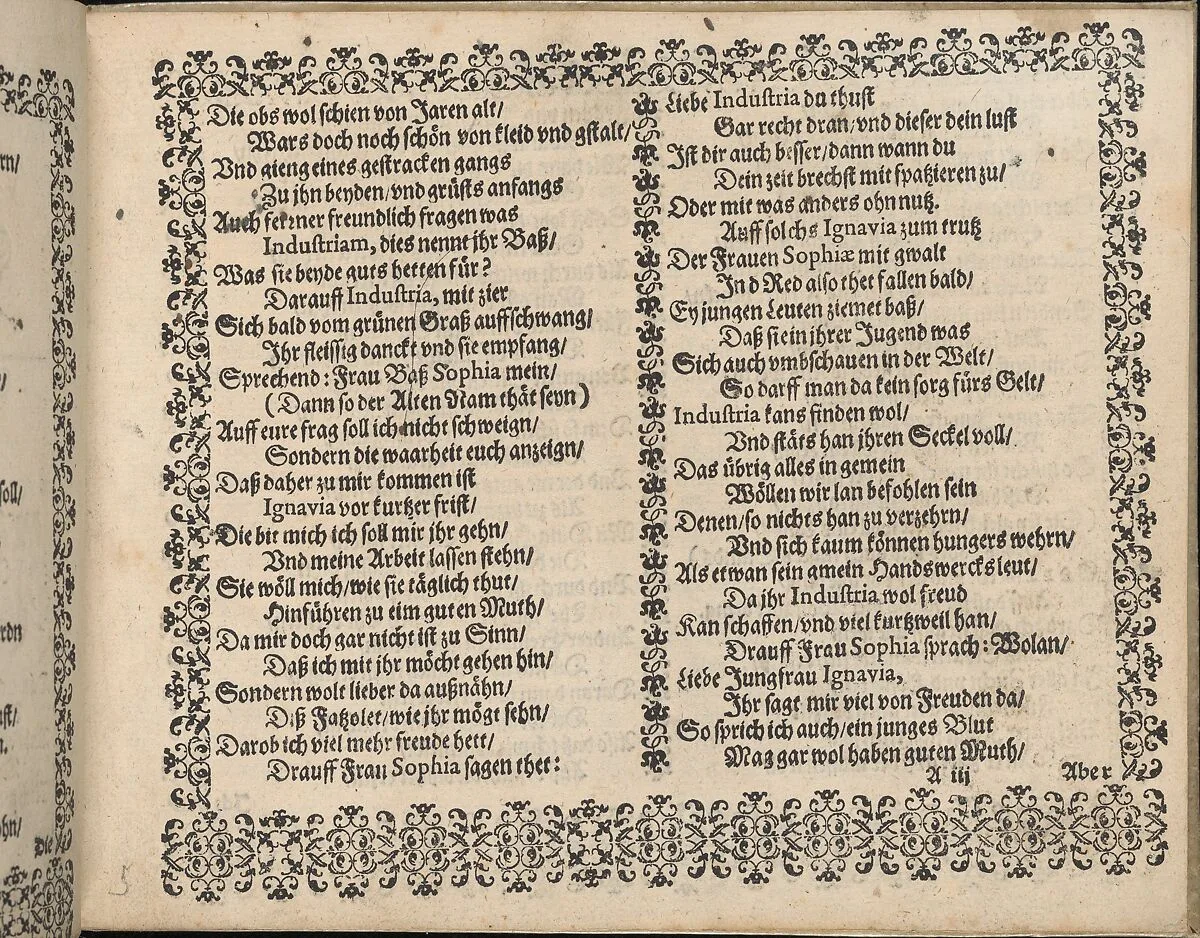 Die obs wol schien von Jaren alt/
Wars doch noch schön von kleid vnd gstalt/
Vnd gieng eines gestracken gangs
Zu jhn beyden/vnd grüsts anfangs
Auch ferrner freundlich fragen was
Industriam, dies nennt jhr Baß/
Was sie beyde guts hetten für?
Darauff Industria, mit zier
Sich bald vom grünen Graß auffschwang/
Jhr fleissig danckt vnd sie empfang/
Sprechend: Frau Baß Sophia mein/
(Dann so der Alten Nam thät seyn)
Auff eure frag soll ich nicht schweign/
Sondern die waarheit euch anzeign/
Daß daher zu mir kommen ist
Ignavia vor kurtzer frist/
Die bit mich ich soll mir jhr gehn/
Vnd meine Arbeit lassen stehn/
Sie wöll mich/wie sie täglich thut/
Hinführen zu eim guten Muth/
Da mir doch gar nicht ist zu Sinn/
Daß ich mit jhr möcht gehen hin/
Sondern wolt lieber da außnähn/
Diß Fatzolet/wie jhr mögt sehn/
Darob ich viel mehr freude hett/
Drauff Frau Sophia sagen thet:
Liebe Industria du thust
Gar recht dran/vnd dieser dein lust
Jst dir auch besser/dann wann du
Dein zeit brechst mit spatzieren zu/
Oder mit was anders ohn nutz.
Auff solchs Ignavia zum trutz
Der Frauen Sophiæ mit gwalt
Jn d Red also thet fallen bald/
Ey jungen Leuten ziemet baß/
Daß sie in jhrer Jugend was
Sich auch vmbschauen in der Welt/
So darff man da kein sorg fürs Gelt/
Industria kans finden wol/
Vnd stäts han jhren Seckel voll/
Das übrig alles in gemein
Wöllen wir lan befohlen sein
Denen/so nichts han zu verzehrn/
Vnd sich kaum können hungers wehrn/
Als etwan sein gmein Handswercksleut/
Da jhr Industria wol freud
Kan schaffen/vnd viel kurtzweil han/
Drauff Frau Sophia sprach: Wolan/
Liebe Jungfrau Ignavia,
Jhr sagt mir viel von Freuden da/
So sprich ich auch/ein junges Blut
Mag gar wol haben guten Muth/
A iij
Aber
Die
5